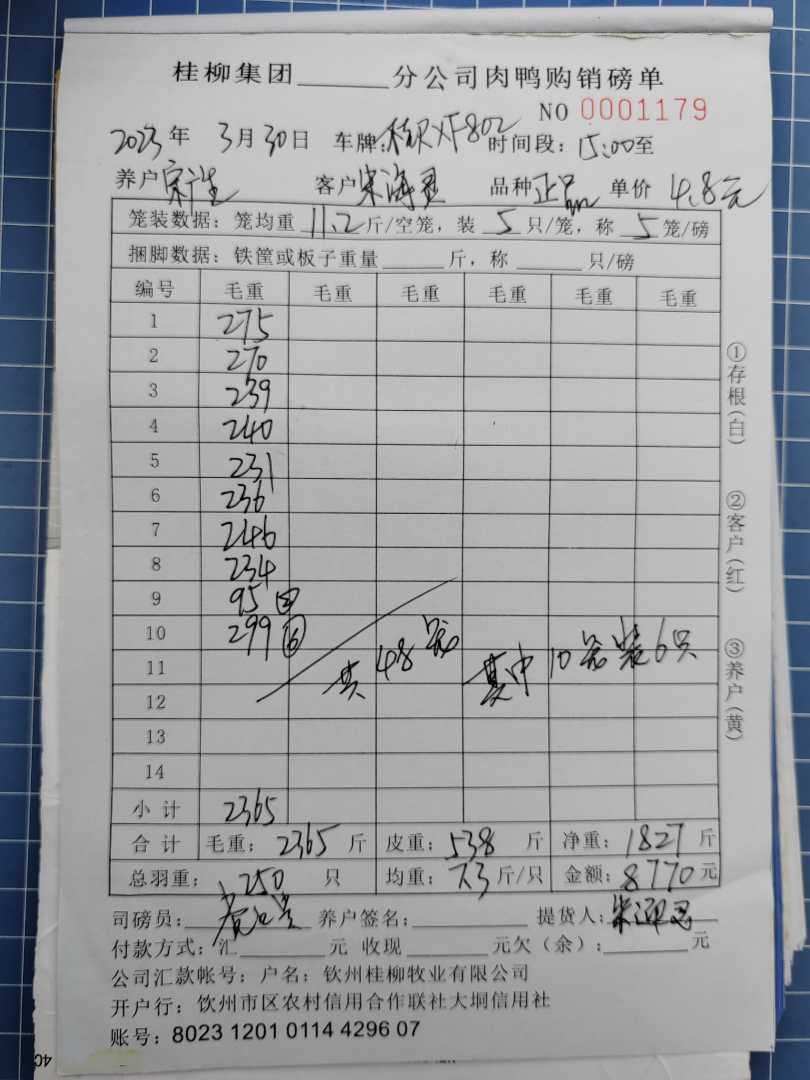 桂柳集团______分公司肉鸭购销磅单
NO 0001179
2023年 3月30日 车牌:桂RXF802 时间段:15:00至
养户 客户 品种正品 单价 4.8元
笼装数据:笼均重 11.2斤/空笼,装 5 只/笼,称 5 笼/磅
捆脚数据:铁筐或板子重量______斤,称______只/磅
编号 毛重 毛重 毛重 毛重 毛重 毛重
1 275
2 270
3 239
4 240
5 231
6 236
7 246
8 234
9 95 ②
10 299 ⑥
共48笼 其中10笼装6只
11
12
13
14
小计 2365
合计 毛重:2365斤 皮重:538斤 净重:1827斤
总羽重:250只 均重:7.3斤/只 金额:8770元
司磅员: 养户签名:______ 提货人:
付款方式:汇______元 收现______元欠(余):______元
公司汇款帐号:户名:钦州桂柳牧业有限公司
开户行:钦州市区农村信用合作联社大垌信用社
账号:8023 1201 0114 4296 07
①存根(白)
②客户(红)
③养户(黄)